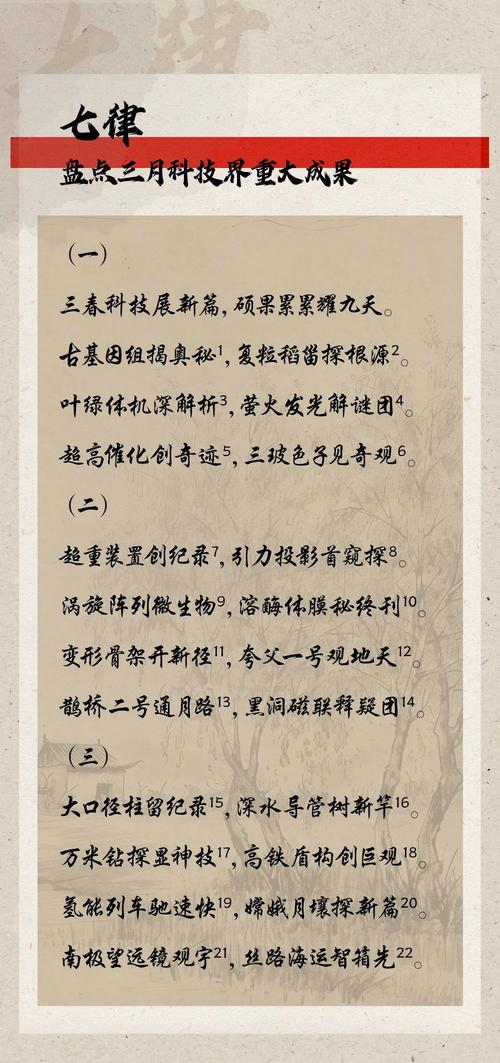 七律
七律
盘点三月科技界重大成果
（一）
三春科技展新篇，硕果累累耀九天。
古基因组揭奥秘1，复粒稻笛探根源2。
叶绿体机深解析3，萤火发光解谜团4。
超高催化创奇迹5，三玻色子见奇观6。
（二）
超重装置创纪录7，引力投影首窥探8。
涡旋阵列微生物9，溶酶体膜秘终刊10。
变形骨架开新径11，夸父一号观地天12。
鹊桥二号通月路13，黑洞磁联释疑团14。
（三）
大口径柱留纪录15，深水导管树新竿16。
万米钻探显神技17，高铁盾构创巨观18。
氢能列车驰速快19，嫦娥月壤探新篇20。
南极望远镜观宇21，丝路海运智箱先22。